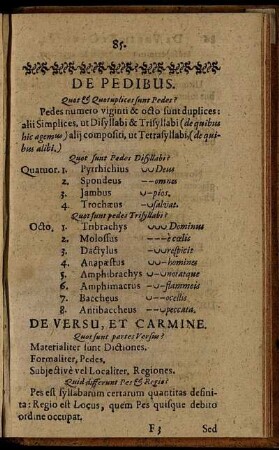 85.
DE PEDIBUS.
Quot & Quotuplices sunt Pedes?
Pedes numero viginti & octo sunt duplices:
alii Simplices, ut Disyllabi & Trisyllabi (de quibus
hic agemus) alij compositi, ut Tetrasyllabi, (de qui-
bus alibi.)
Quot sunt Pedes Disyllabi?
Quatuor. 1. Pyrrhichius ᴗᴗDeus
2. Spondeus --omnes
3. Jambus ᴗ-pios.
4. Trochæus -ᴗsalvat.
Quot sunt pedes Trisyllabi?
Octo, 1. Tribrachys ᴗᴗᴗDominus
2. Molossus ---è cœlis
3. Dactylus -ᴗᴗrespicit
4. Anapæstus ᴗᴗ-homines
5. Amphibrachys ᴗ-ᴗnotatque
6. Amphimacrus -ᴗ-flammeis
7. Baccheus ᴗ--ocellis
8. Antibaccheus --ᴗpeccata.
DE VERSU, ET CARMINE.
Quot sunt partes Versus?
Materialiter sunt Dictiones.
Formaliter, Pedes,
Subjectivè vel Localiter, Regiones.
Quid differunt Pes & Regio?
Pes est syllabarum certarum quantitas defini-
ta: Regio est Locus, quem Pes quisque debito
ordine occupat.
F 3 Sed